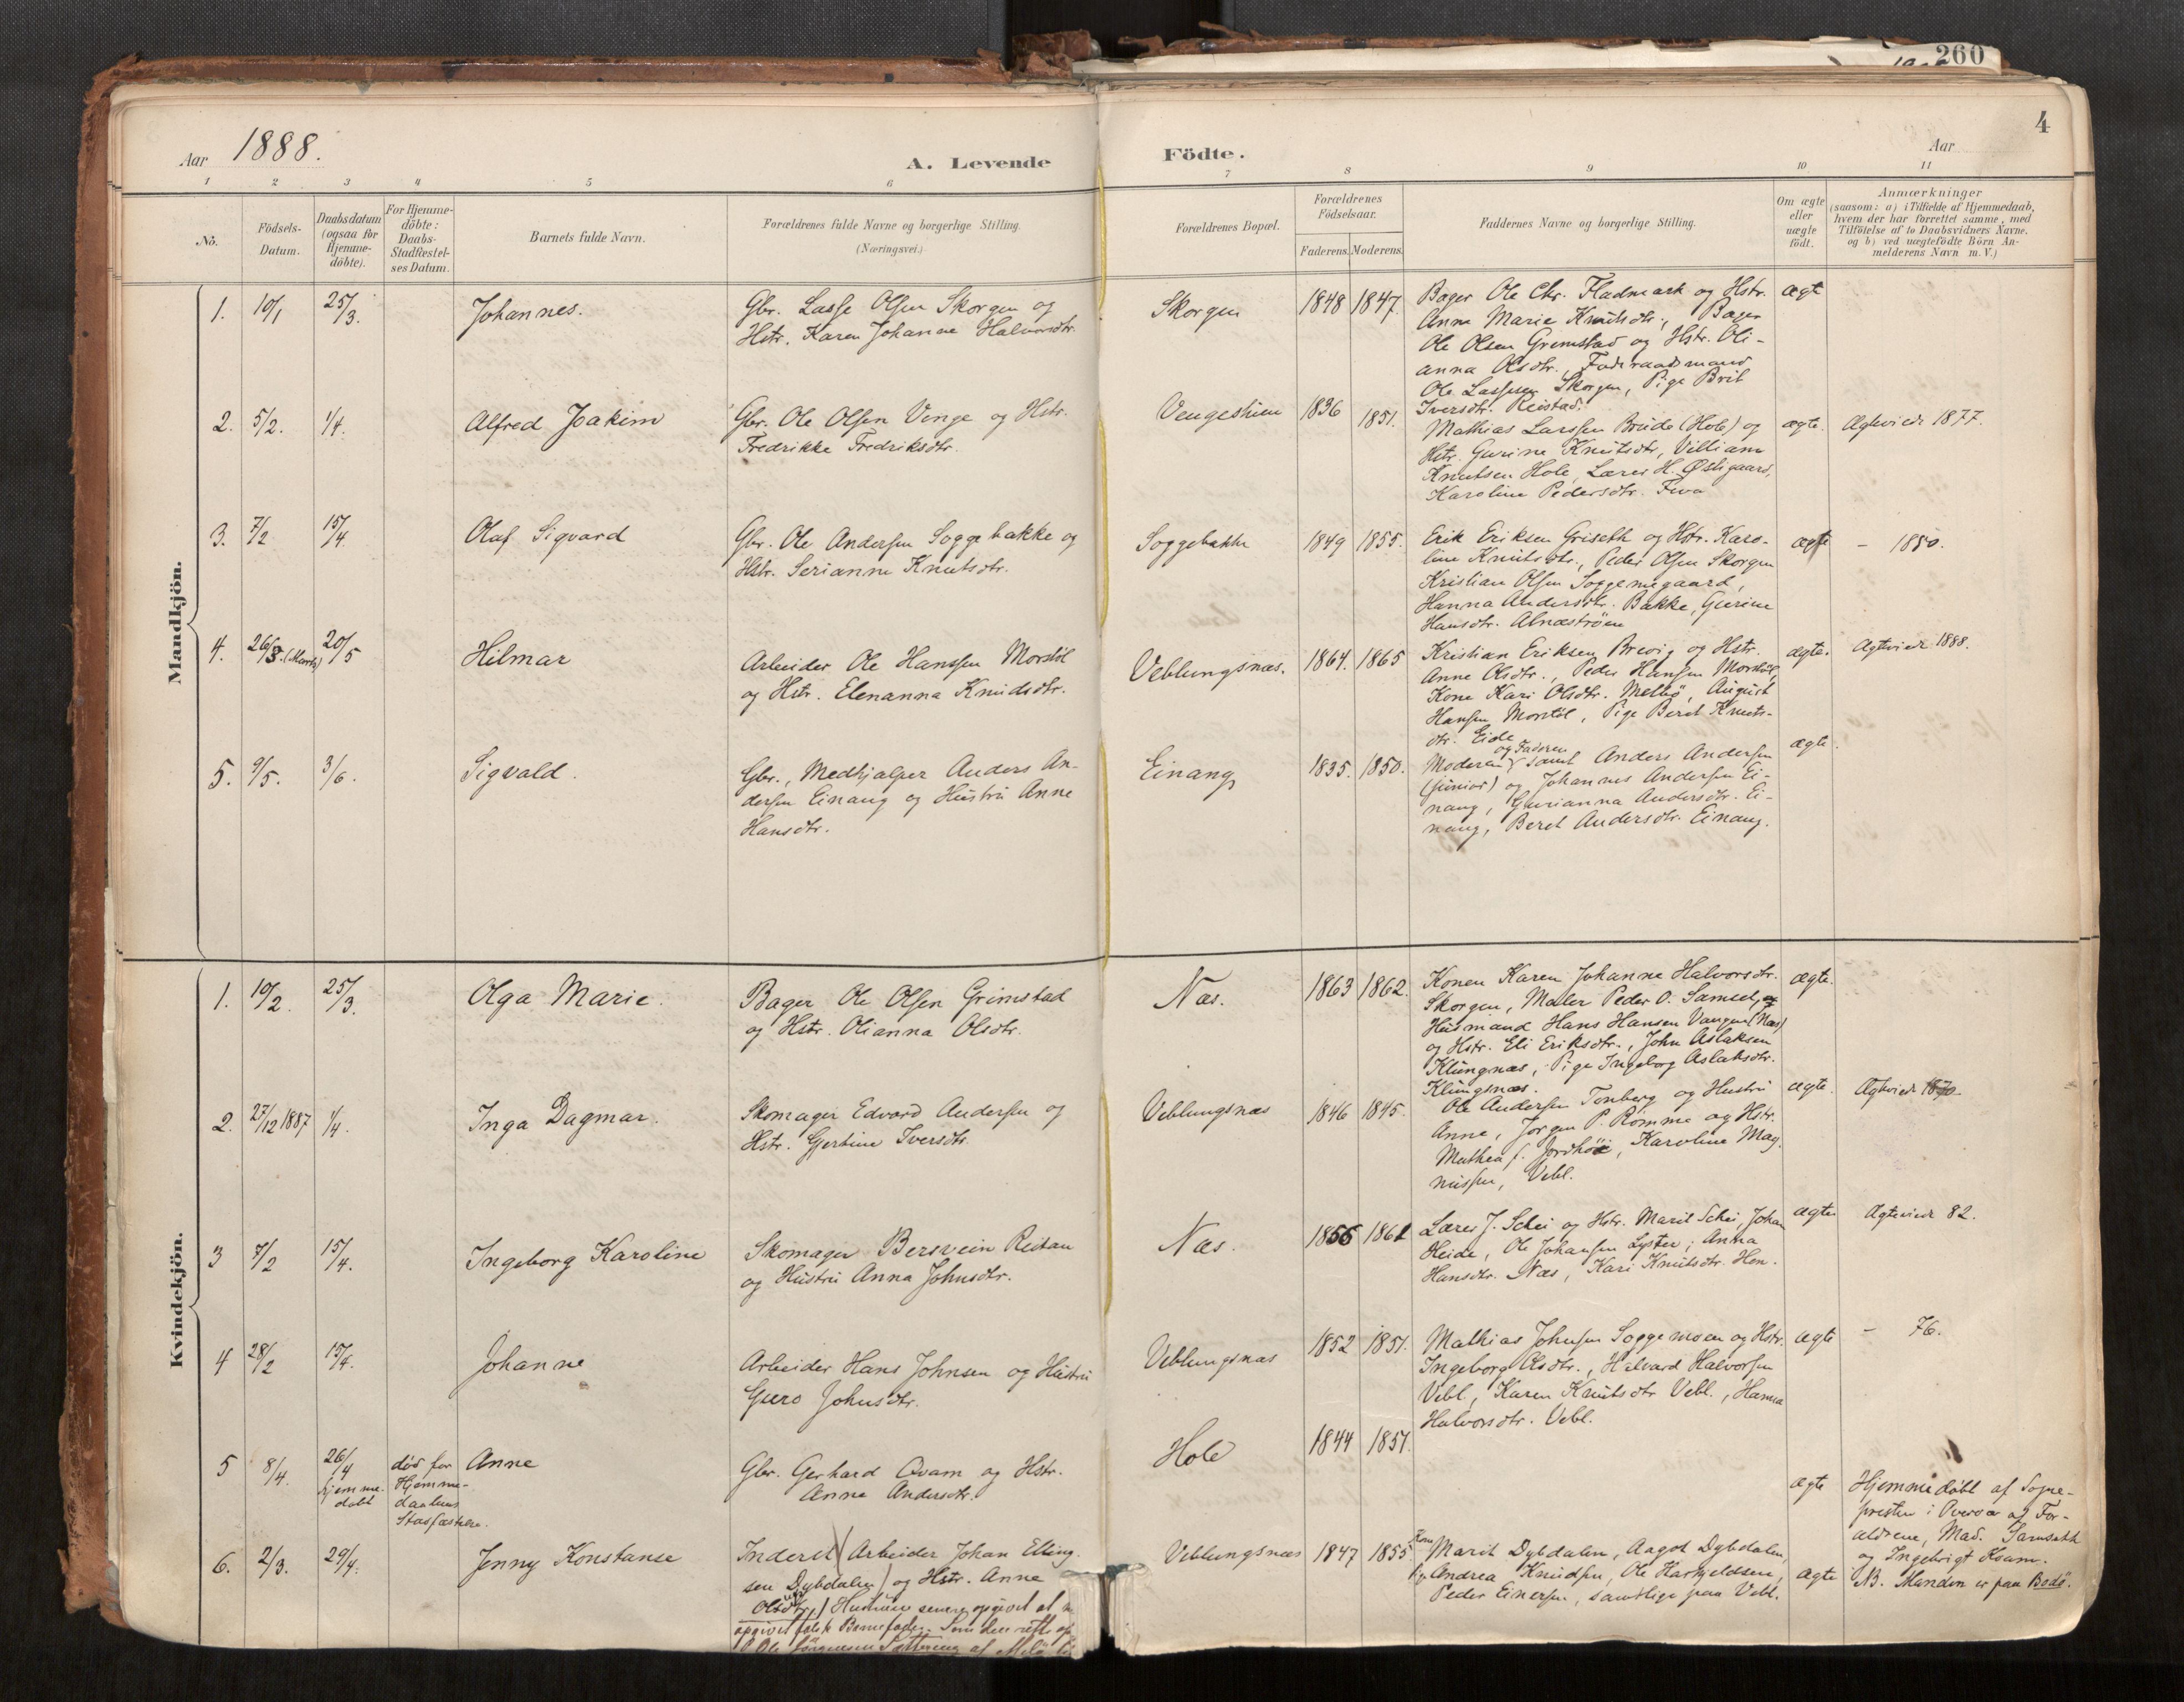 260
4
Aar 1888.
A. Levende Födte.
Aar
1 2 3 4 5 6 7 8 9 10 11
No.
Födsels-Datum.
Daabsdatum (ogsaa for Hjemme-döbte).
For Hjemme-döbte: Daabs-Stadfæstel-ses Datum.
Barnets fulde Navn.
Forældrenes fulde Navne og borgerlige Stilling.
(Næringsvei.)
Forældrenes Bopæl.
Forældrenes Födselsaar.
Faderens. Moderens.
Faddernes Navne og borgerlige Stilling.
Om ægte eller uægte födt.
Anmærkninger
(saasom: a) i Tilfælde af Hjemmedaab,
hvem der har forrettet samme, med
Tilföielse af to Daabsvidners Navne.
og b) ved uægtefödte Börn An-
melderens Navn m. V.)
Mandkjön.
1. 10/1 25/3. Johannes.
Gbr. Lasse Olsen Skorgen og
Hstr. Karen Johanne Halvorsdtr.
Skorgen 1848 1847.
Bager Ole Chr. Fladmark og Hstr.
Anne Marie Knutsdtr., Bager
Ole Olsen Grimstad og Hstr. Oli-
anna Olsdtr., Føderaadsmand
Ole Lassesen Skorgen, Pige Brit
Iversdtr. Reistad.
ægte
2. 5/2. 1/4. Alfred Joakim
Gbr. Ole Olsen Venge og Hstr.
Fredrikke Fredriksdtr.
Vengeshien 1836 1851.
Mathias Larssen Brude (Hole) og
Hstr. Gurine Knutsdtr, Villiam
Knutsen Hole, Lærer H. Østigaard,
Karoline Pedersdtr. Fiva
ægte. Ægteviede 1877.
3. 7/2 15/4. Olaf Sigvard
Gbr. Ole Andersen Soggebakke og
Hstr. Serianne Knutsdtr.
Soggebakke 1849 1855.
Erik Eriksen Griseth og Hstr. Karo-
line Knutsdtr., Peder Olsen Skorgen
Kristian Olsen Soggemegaard,
Hanna Andersdtr. Bakke, Gurine
Hansdtr. Alnæstrøen
ægte - 1880.
4. 26/3. (Marts) 20/5 Hilmar
Arbeider Ole Hanssen Morstøl
og Hstr. Elenanna Knudsdtr.
Veblungsnæs. 1864. 1865
Kristian Eriksen Brevig og Hstr.
Anne Olsdtr., Peder Hansen Morstøl,
Kone Kari Olsdtr. Melbø, August
Hansen Morstøl, Pige Beret Knuts-
dtr. Eide
ægte. Ægteviede 1888.
5. 9/5. 3/6. Sigvald.
Gbr., Medhjælper Anders An-
dersen Einang og Hustru Anne
Hansdtr.
Einang 1835. 1850.
og Faderen
Moderen samt Anders Andersen
(junior) og Johannes Andersen Ei-
nang, Gurianna Andersdtr. Ei-
nang, Beret Andersdtr. Einang.
ægte.
Kvindekjön.
1. 10/2. 25/3. Olga Marie.
Bager Ole Olsen Grimstad
og Hstr. Olianna Olsdtr.
Næs. 1863 1862.
Konen Karen Johanne Halvorsdtr.
Skorgen, Maler Peder O. Samset, og
Husmand Hans Hansen Vangen (Næs)
og Hstr. Eli Eriksdtr., John Aslaksen
Klungnæs, Pige Ingeborg Aslaksdtr.
Klungnæs.
ægte.
2. 27/12 1887 1/4. Inga Dagmar.
Skomager Edvard Andersen og
Hstr. Gjertine Iversdtr.
Veblungsnæs 1846 1845.
Ole Andersen Tonberg og Hustru
Anne, Jørgen P. Romme og Hstr.
Mathea f. Jordhøi, Karoline Mag-
nussen, Vebl.
ægte. Ægteviede 1870.
3 7/2 15/4. Ingeborg Karoline
Skomager Bersvein Reitan
og Hustru Anna Johnsdtr.
Næs. 1855 1861
Lærer J. Schei og Hstr. Marit Schei, Johan
Heide, Ole Johansen Lyster, Anna
Hansdtr. Næs, Kari Knutsdtr. Hen.
ægte Ægteviede 82.
4 28/2 15/4. Johanne
Arbeider Hans Johnsen og Hustru
Guro Johnsdtr.
Veblungsnæs 1852 1851.
Mathias Johnsen Soggemoen og Hstr.
Ingeborg Olsdtr., Halvard Halvorsen
Vebl., Karen Knutsdtr Vebl., Hanna
Halvorsdtr. Vebl.
ægte - 76.
5 8/4. 26/4 hjemme-døbt
død før
Hjemme-
daabens
Stadfæstelse.
Anne
Gbr. Gerhard Qvam og Hstr.
Anne Andersdtr.
Hole 1844 1851.
ægte
Hjemmedøbt af Sogne-
presten i Overvær af For-
ældrene, Mad. Samseth
og Ingebrigt Kvam.
6. 2/3. 29/4. Jenny Konstanse
Inderst Arbeider Johan Elling-
sen Dybdalen) og Hstr. Anne
Olsdtr, Hustruen senere opgivet at
opgivet falsk Barnefader. Som den rette
Veblungsnæs 1847 1855.
Kone Marit Dybdalen, Aagot Dybdalen,
Andrea Knudsen, Ole Karkjeldsen,
Peder Einersen, samtlige paa Vebl.
ægte NB. Manden er paa Bodø.